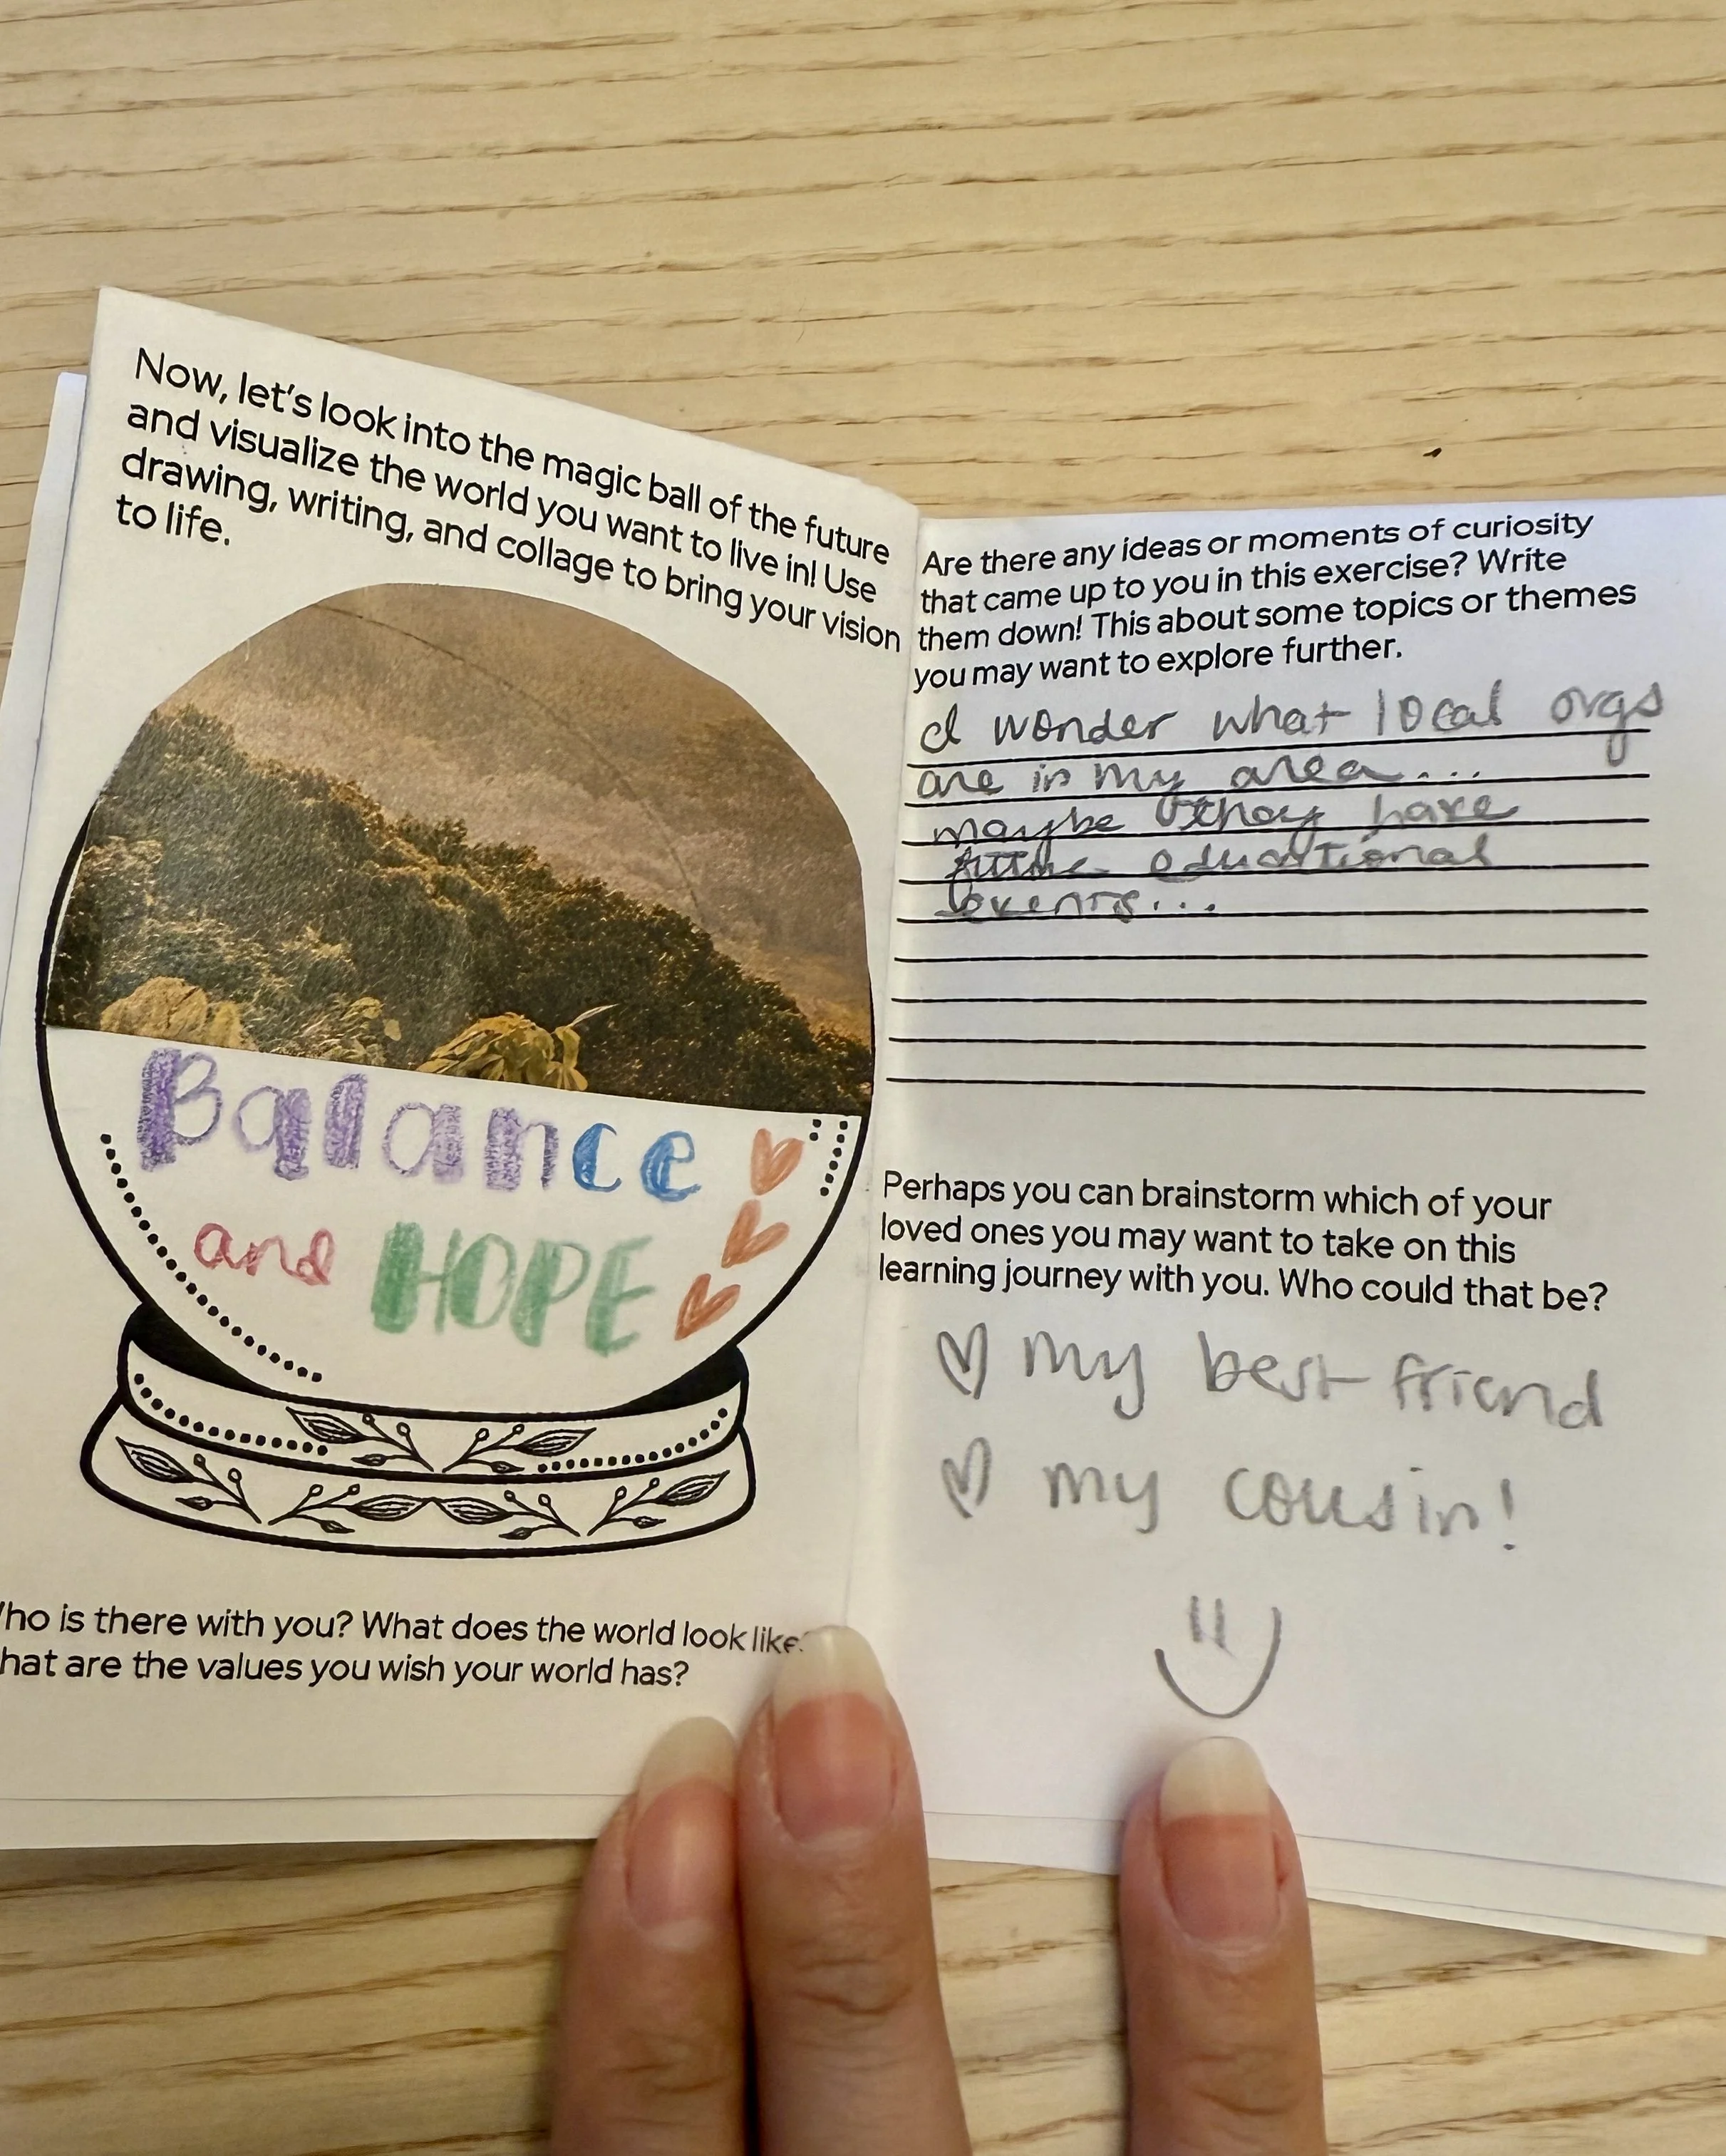 Now, let's look into the magic ball of the future
and visualize the world you want to live in! Use
drawing, writing, and collage to bring your vision
to life.
Balance
and HOPE
ho is there with you? What does the world look like
hat are the values you wish your world has?
Are there any ideas or moments of curiosity
that came up to you in this exercise? Write
them down! This about some topics or themes
you may want to explore further.
I wonder what local orgs
are in my area...
maybe they have
future educational
events...
Perhaps you can brainstorm which of your
loved ones you may want to take on this
learning journey with you. Who could that be?
my best friend
my cousin!